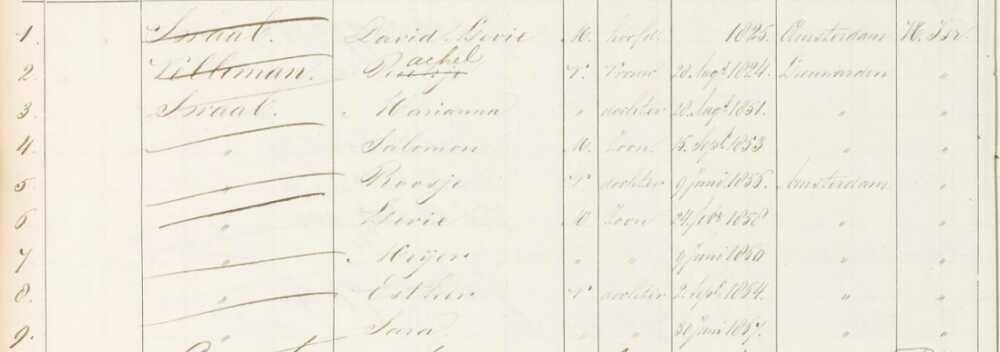 1. Israel. David Levie M. hoofd. 1825. Amsterdam N. Isr.
2. Rachel Vr. Vrouw 28 Augt 1824. Leeuwarden "
3. Israel. Marianna " dochter 28 Augt 1851. " "
4. " Salomon M. Zoon 15 Sept 1853 " "
5. " Roosje Vr dochter 9 Juni 1855. Amsterdam "
6. " Levie M Zoon 24 Febr 1858 " "
7. " Meijer " " 9 Juni 1860 " "
8. " Esther Vr dochter 2 Sept 1864. " "
9. " Sara " " 30 Juni 1867. " "